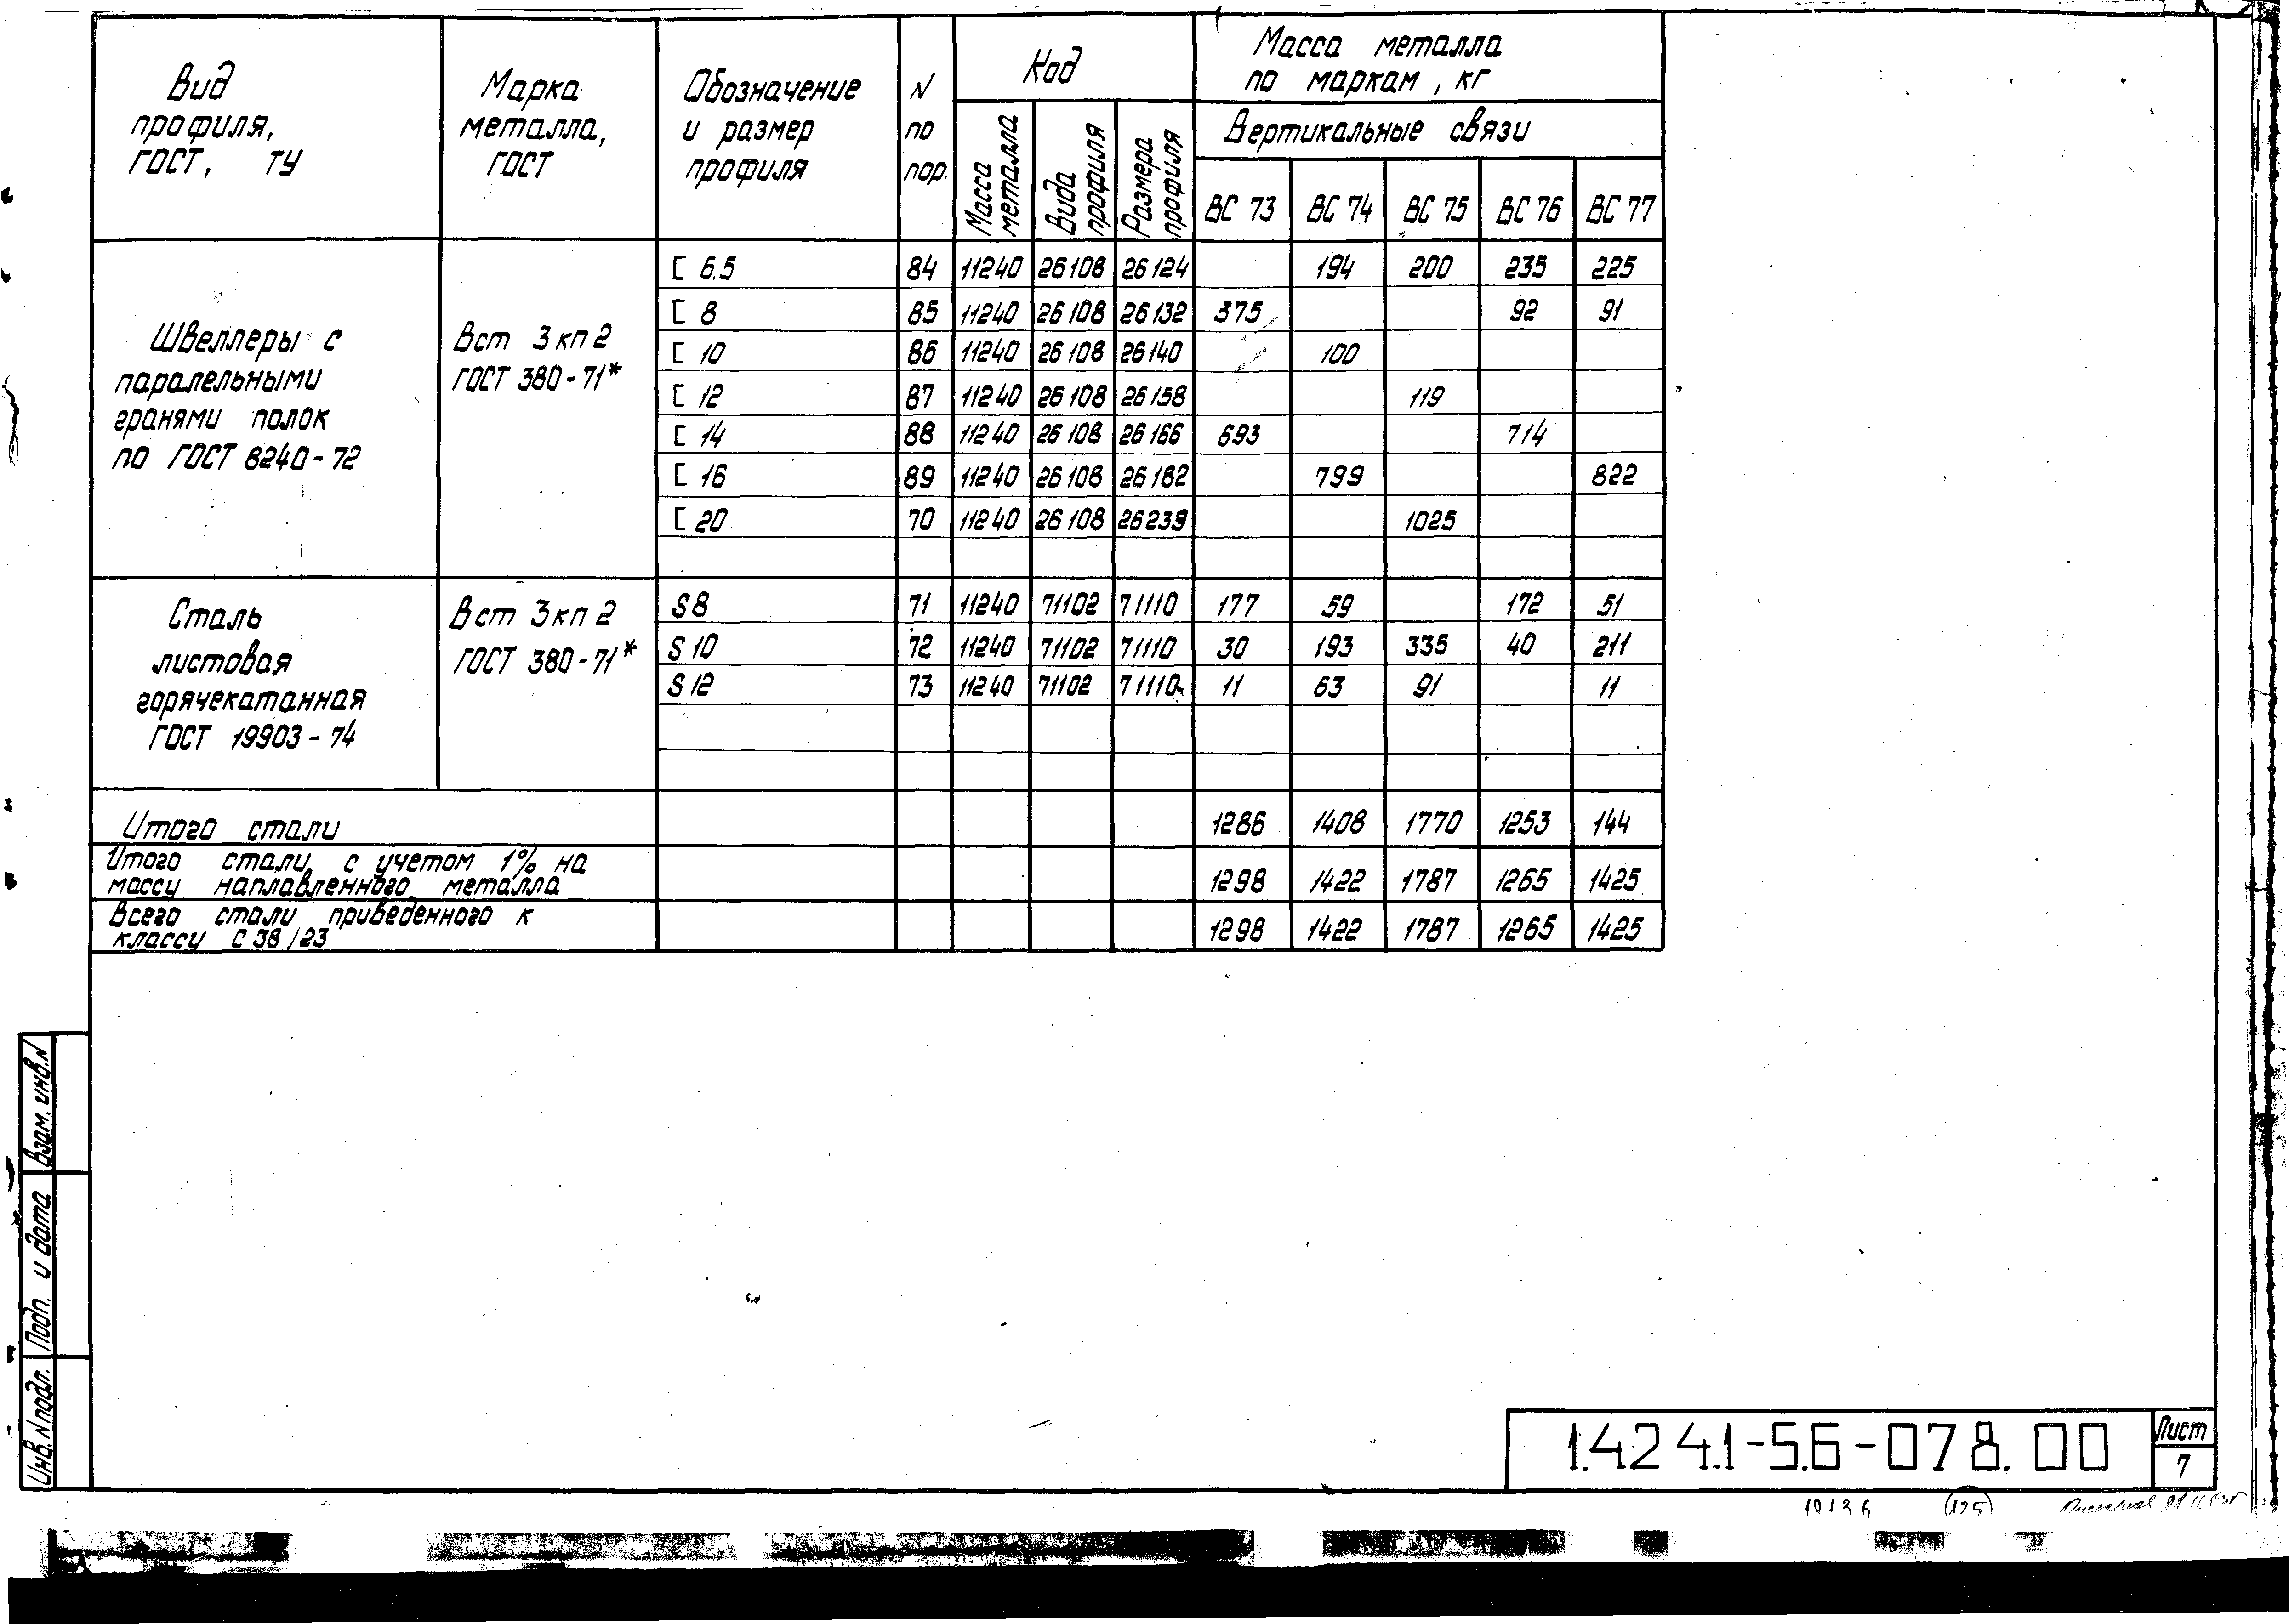 Вид профиля, ГОСТ, ТУ
Марка металла, ГОСТ
Обозначение и размер профиля
N по пор.
Код
Масса металла
Вида профиля
Размера профиля
Масса металла по маркам, кг
Вертикальные связи
ВС 73 ВС 74 ВС 75 ВС 76 ВС 77
Швеллеры с
паралельными
гранями полок
по ГОСТ 8240-72
Вст 3кп2
ГОСТ 380-71*
[ 6.5 84 11240 26108 26124 194 200 235 225
[ 8 85 11240 26108 26132 375 92 91
[ 10 86 11240 26108 26140 100
[ 12 87 11240 26108 26158 119
[ 14 88 11240 26108 26166 693 714
[ 16 89 11240 26108 26182 799 822
[ 20 70 11240 26108 26239 1025
Сталь
листовая
горячекатанная
ГОСТ 19903-74
Вст 3кп2
ГОСТ 380-71*
S8 71 11240 71102 71110 177 59 172 51
S10 72 11240 71102 71110 30 193 335 40 211
S12 73 11240 71102 71110 11 63 91 11
Итого стали 1286 1408 1770 1253 144
Итого стали, с учетом 1% на
массу наплавленного металла 1298 1422 1787 1265 1425
Всего стали приведенного к
классу С38/23 1298 1422 1787 1265 1425
Взам. инв.N
Подп. и дата
Инв. N подл.
1.424.1-5.6-078.00
Лист
7
19136
125